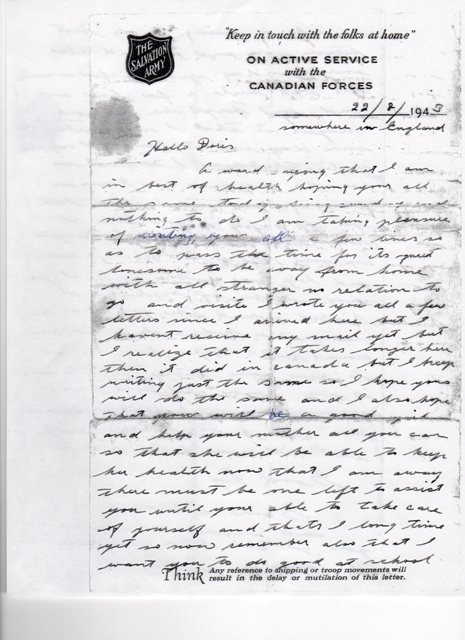 THE
SALVATION
ARMY
"Keep in touch with the folks at home"
ON ACTIVE SERVICE
with the
CANADIAN FORCES
22/8/1943
somewhere in England
Hello Doris
A word saying that I am
in best of health hoping your all
the same today being sunday and
nothing to do I am taking pleasure
of writing your all a few lines so
as to pass the time for its quit
lonesome to be away from home
with all stranger no relation to
go and visite I wrote you all a few
letters since I arived here but I
havent receive any mail yet but
I realize that it takes longer here
then it did in canada but I keep
writing just the same so I hope yous
will do the same and I also hope
that you will be a good girl
and help your mother all you can
so that she will be able to keep
her health now that I am away
there must be one left to assist
you until your able to take care
of yourself and thats I long time
yet so now remember also that I
want you to do good at school
Think Any reference to shipping or troop movements will
result in the delay or mutilation of this letter.